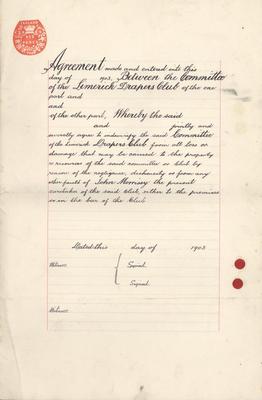 Agreement made and entered into this
day of 1903, Between the Committee
of the Limerick Drapers Club of the one
part and
and
of the other part, Whereby the said
and jointly and
severally agree to indemnify the said Committee
of the Limerick Drapers Club from all loss or
damage that may be caused to the property
or resources of the said committee or Club by
reason of the negligence, dishonesty or from any
other faults of John Morrissey the present
caretaker of the said Club, either to the premises
or in the bar of the Club
Dated this day of 1903
Witness Signed
Signed
Witness